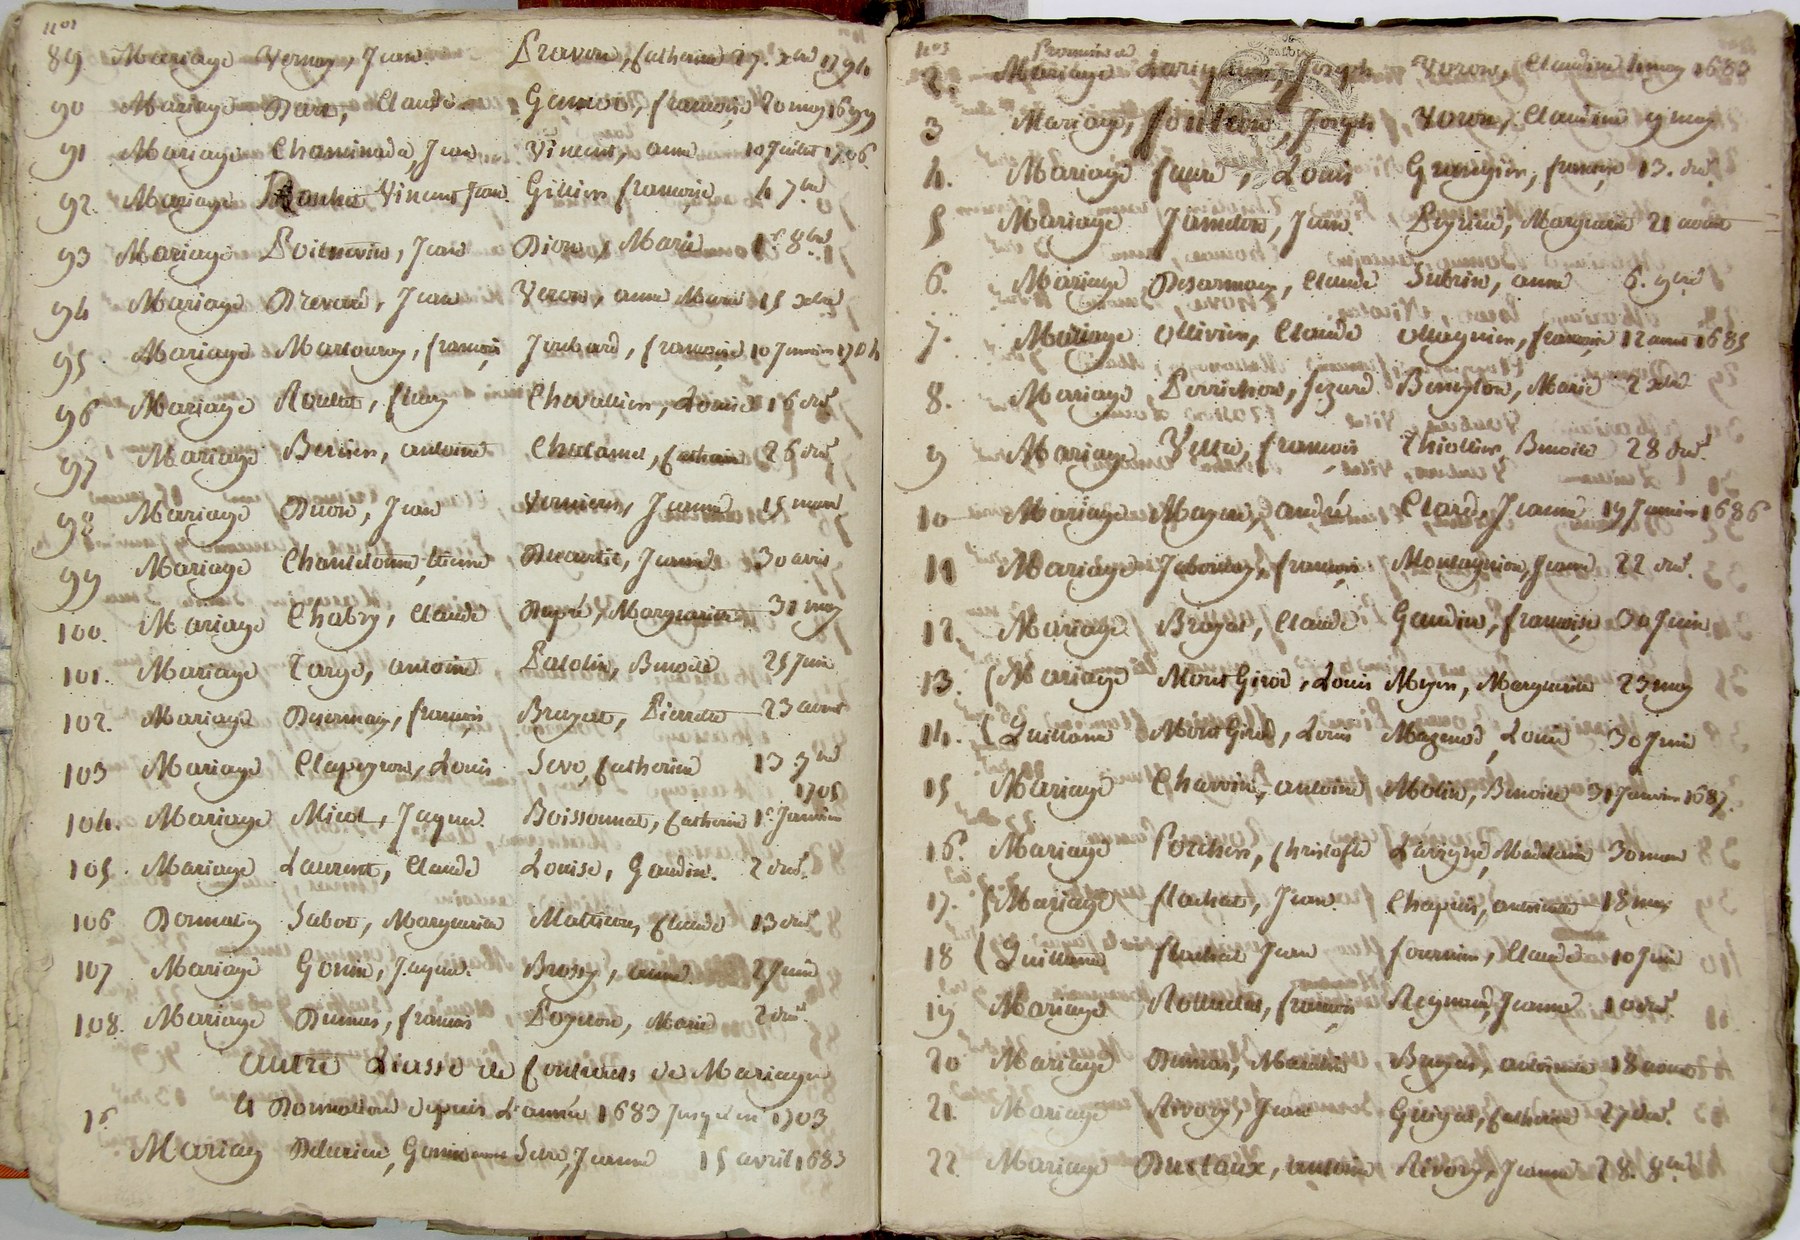 nos
89 Mariage Vernay, Jean Pravon, Catherine 27. xbre 1794
90 Mariage Dard, Claude françoise 20 may 1699
91 Mariage Chaminade, Jean Vincent, anne 10 Juillet 1706
92 Mariage Vincent Jean Gillier françoise 4 7bre
93 Mariage Poitrevin, Jean Dion, Marie 1er 8bre
94 Mariage Drevard, Jean Veron, anne Marie 15 xbre
95 Mariage Martouray, françois Joubard, françoise 10 Janvier 1704
96 Mariage Roullet, fleury Chevallier, Louise 16 dud.
97 Mariage Berier, antoine Chatamel, Catherine 26 dud.
98 Mariage Duon, Jean Verniere, Jeanne 15 mars
99 Mariage Chantelonne, Etienne Ducurtil, Jeanne 30 avril
100. Mariage Chabry, Claude Dupré, Marguerite 31 may
101. Mariage Large, antoine Patolin, Benoite 25 Juin
102. Mariage Desermay, françois Bruyere, Pierrette 23 aoust
103 Mariage Clapeyron, Louis Seve, Catherine 13 9bre
1705
104. Mariage Micol, Jaque. Boissonnat, Catherine 1er Janvier
105. Mariage Laurent, Claude Louise, Gaudin. 2 dud.
106 Donnat.on Sabot, Marguerite Mathieu, Claude 13 dud.
107 Mariage Gonin, Jaque. Brossy, anne. 2 Juin
108. Mariage Dumas, françois Pognon, Marie 2 dud.
autre Liasse de Contracts de Mariage
et Donnations depuis L'année 1683 Jusqu'en 1703
1er
Mariage Seve, Jeanne 15 avril 1683
nos
Promesse de
2. Mariage Joseph Voron, Claudine 4 may 1683
3 Mariage, Joseph Voron, Claudine 19 may
4. Mariage faure, Louis Grangier, françoise 13. dud.
5 Mariage Jameton, Jean Peyrieu, Marguerite 21 aoust
6. Mariage Desarmaux, Claude Subrin, anne 6. 9bre
7. Mariage Ollivier, Claude Ollagnier, françoise 12 aoust 1685
8. Mariage Perrichon, Benoyton, Marie 2 xbre
9 Mariage françois Thiollier, Benoite 28 dud.
10 Mariage Mazen, andré Clard, Jeanne 19 Janvier 1686
11 Mariage Jaboulay, françois Montagnion, Jeanne 22 dud.
12. Mariage Broyat, Claude Gaudin, françoise 30 Juin
13. (Mariage MontGirod, Louis Meyer, Marguerite 23 may
14. (Quittance MontGirod, Louis Mazenod, Louis 30 Juin
15 Mariage Charvin, antoine Molin, Benoite 31 Janvier 1687.
16. Mariage Porcher, Christofle Lavigne, Madelaine 30 mars
17. (Mariage flachat, Jean. Chapuis, antoinette 18 may
18 (Quittance flachat Jean fournier, Claude 10 Juin
19 Mariage françois Reynaud, Jeanne 10 dud.
20 Mariage Dumas, Mathieu Bruyas, antoinette 18 aoust
21. Mariage Rivory, Jean Guigat, Catherine 27 dud.
22. Mariage Dustaux, antoine Rivory, Jeanne 28. 8bre